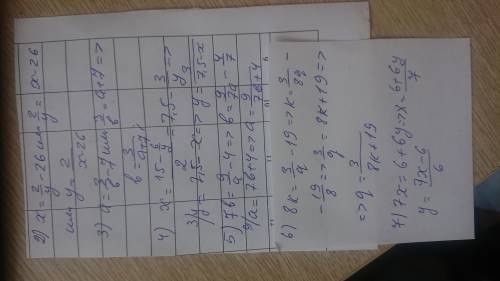 2) x = 2/y - 26 или 2/y = x - 26
или y = 2/x-26
3) a = 3/b - y или 3/b = a+y =>
b = 3/a+y
4) x = 15 - 6/y = 7,5 - 3/y =>
3/y = 7,5 - x => y = 3/7,5-x
5) 7b = 9/a - 4 => b = 9/7a - 4/7
9/a = 7b+4 => a = 9/7b+4
6) 8k = 3/q - 19 => k = 3/8q -
- 19/8 => 3/q = 8k+19 =>
=> q = 3/8k+19
7) 7x = 6+6y => x = 6+6y/7
y = 7x-6/6